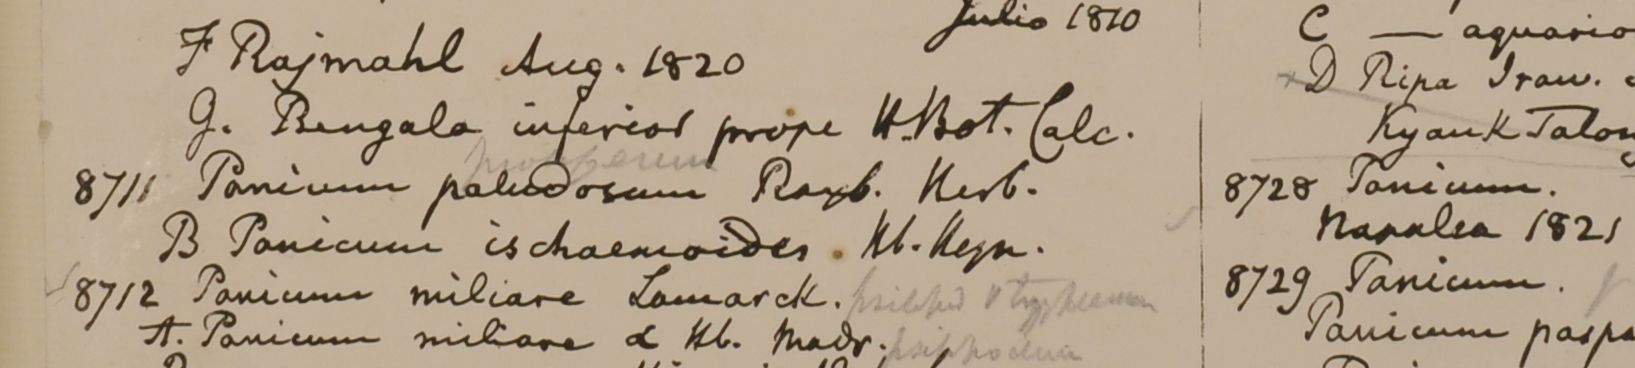 Julio 1810
F Rajmahl Aug. 1820
G. Bengala inferior prope H. Bot. Calc.
8711 Panicum paludosum Roxb. Herb.
B Panicum ischaemoides. Hb. Heyn.
8712 Panicum miliare Lamarck.
A. Panicum miliare α Hb. Madr.
C — aquario
D Ripa Iraw.
Kyauk Talon
8728 Panicum.
Navalea 1821
8729 Panicum.
Panicum paspa